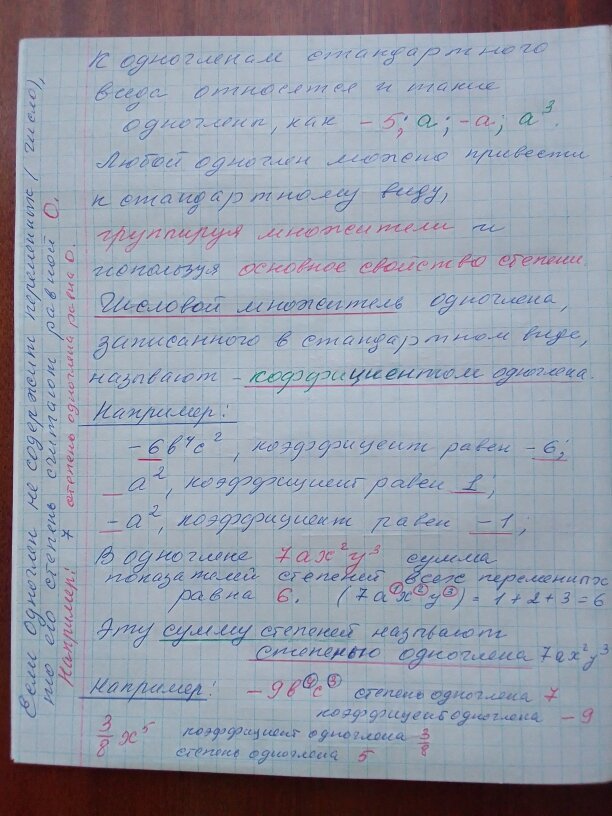 К одночленам стандартного
вида относятся и такие
одночлены, как – 5; a; -a; a³.
Любой одночлен можно привести
к стандартному виду,
группируя множители и
используя основное свойство степени.
Числовой множитель одночлена,
записанного в стандартном виде,
называют – коффициентом одночлена.
Например:
-6b⁴c², коэффициент равен -6;
a², коэффициент равен 1;
-a², коэффициент равен -1;
В одночлене 7ax²y³ сумма
показателей степеней всех переменных
равна 6. (7a¹x²y³) = 1+2+3=6
Эту сумму степеней называют
степенью одночлена 7ax²y³
Например: -9b⁴c³ степень одночлена 7
коэффицент одночлена -9
3/8 x⁵ коэффициент одночлена 3/8
степень одночлена 5
Если одночлен не содержит переменных (число),
то его степень считают равной 0.
Например: 7 степень одночлена равна 0.